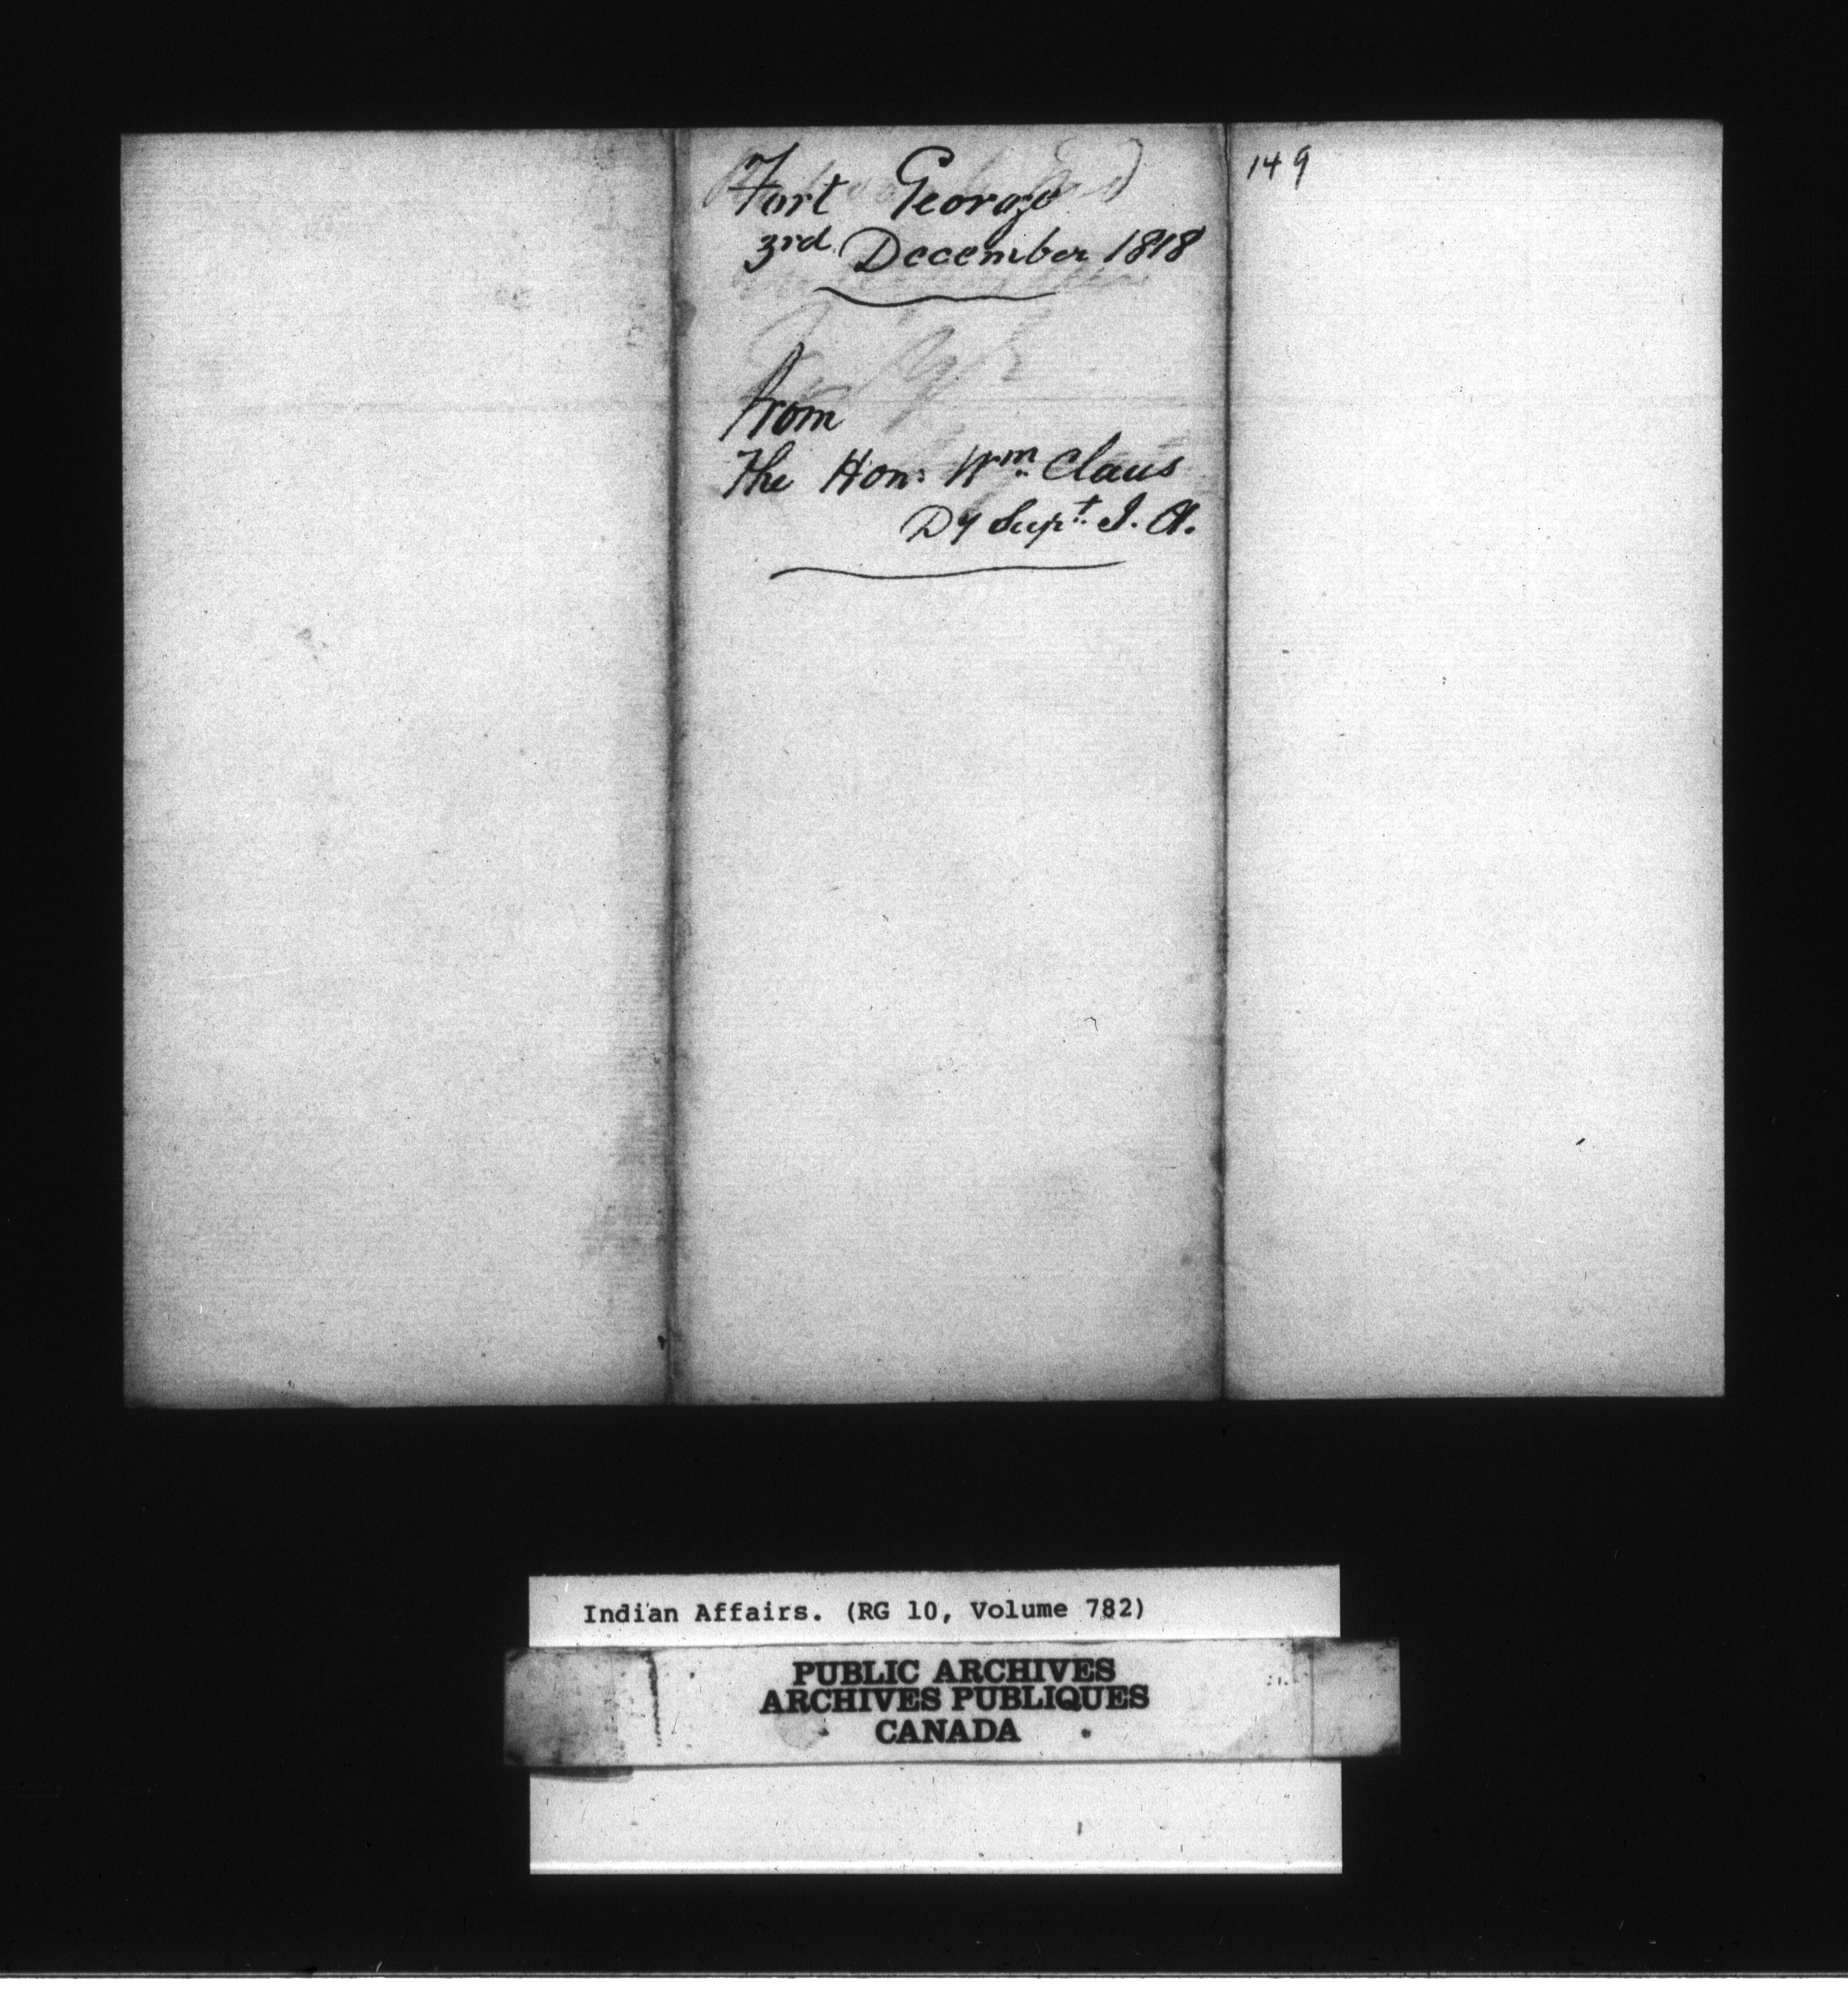 Fort George
3rd December 1818
from
The Hon: Wm Claus
Dy Supt. I. A.
149
Indian Affairs. (RG 10, Volume 782)
PUBLIC ARCHIVES
ARCHIVES PUBLIQUES
CANADA